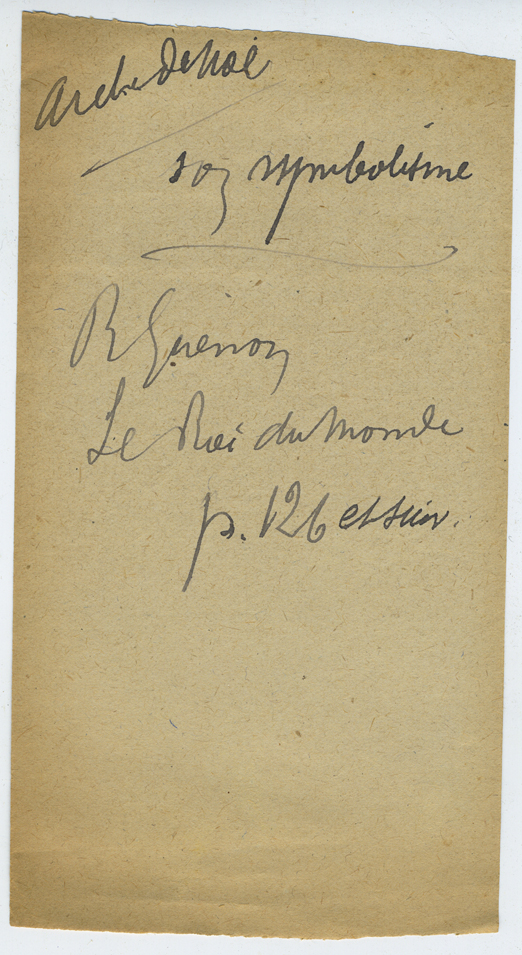 Arche de Noé
son symbolisme
R Guénon
Le Roi du Monde
p. 126 et suiv.